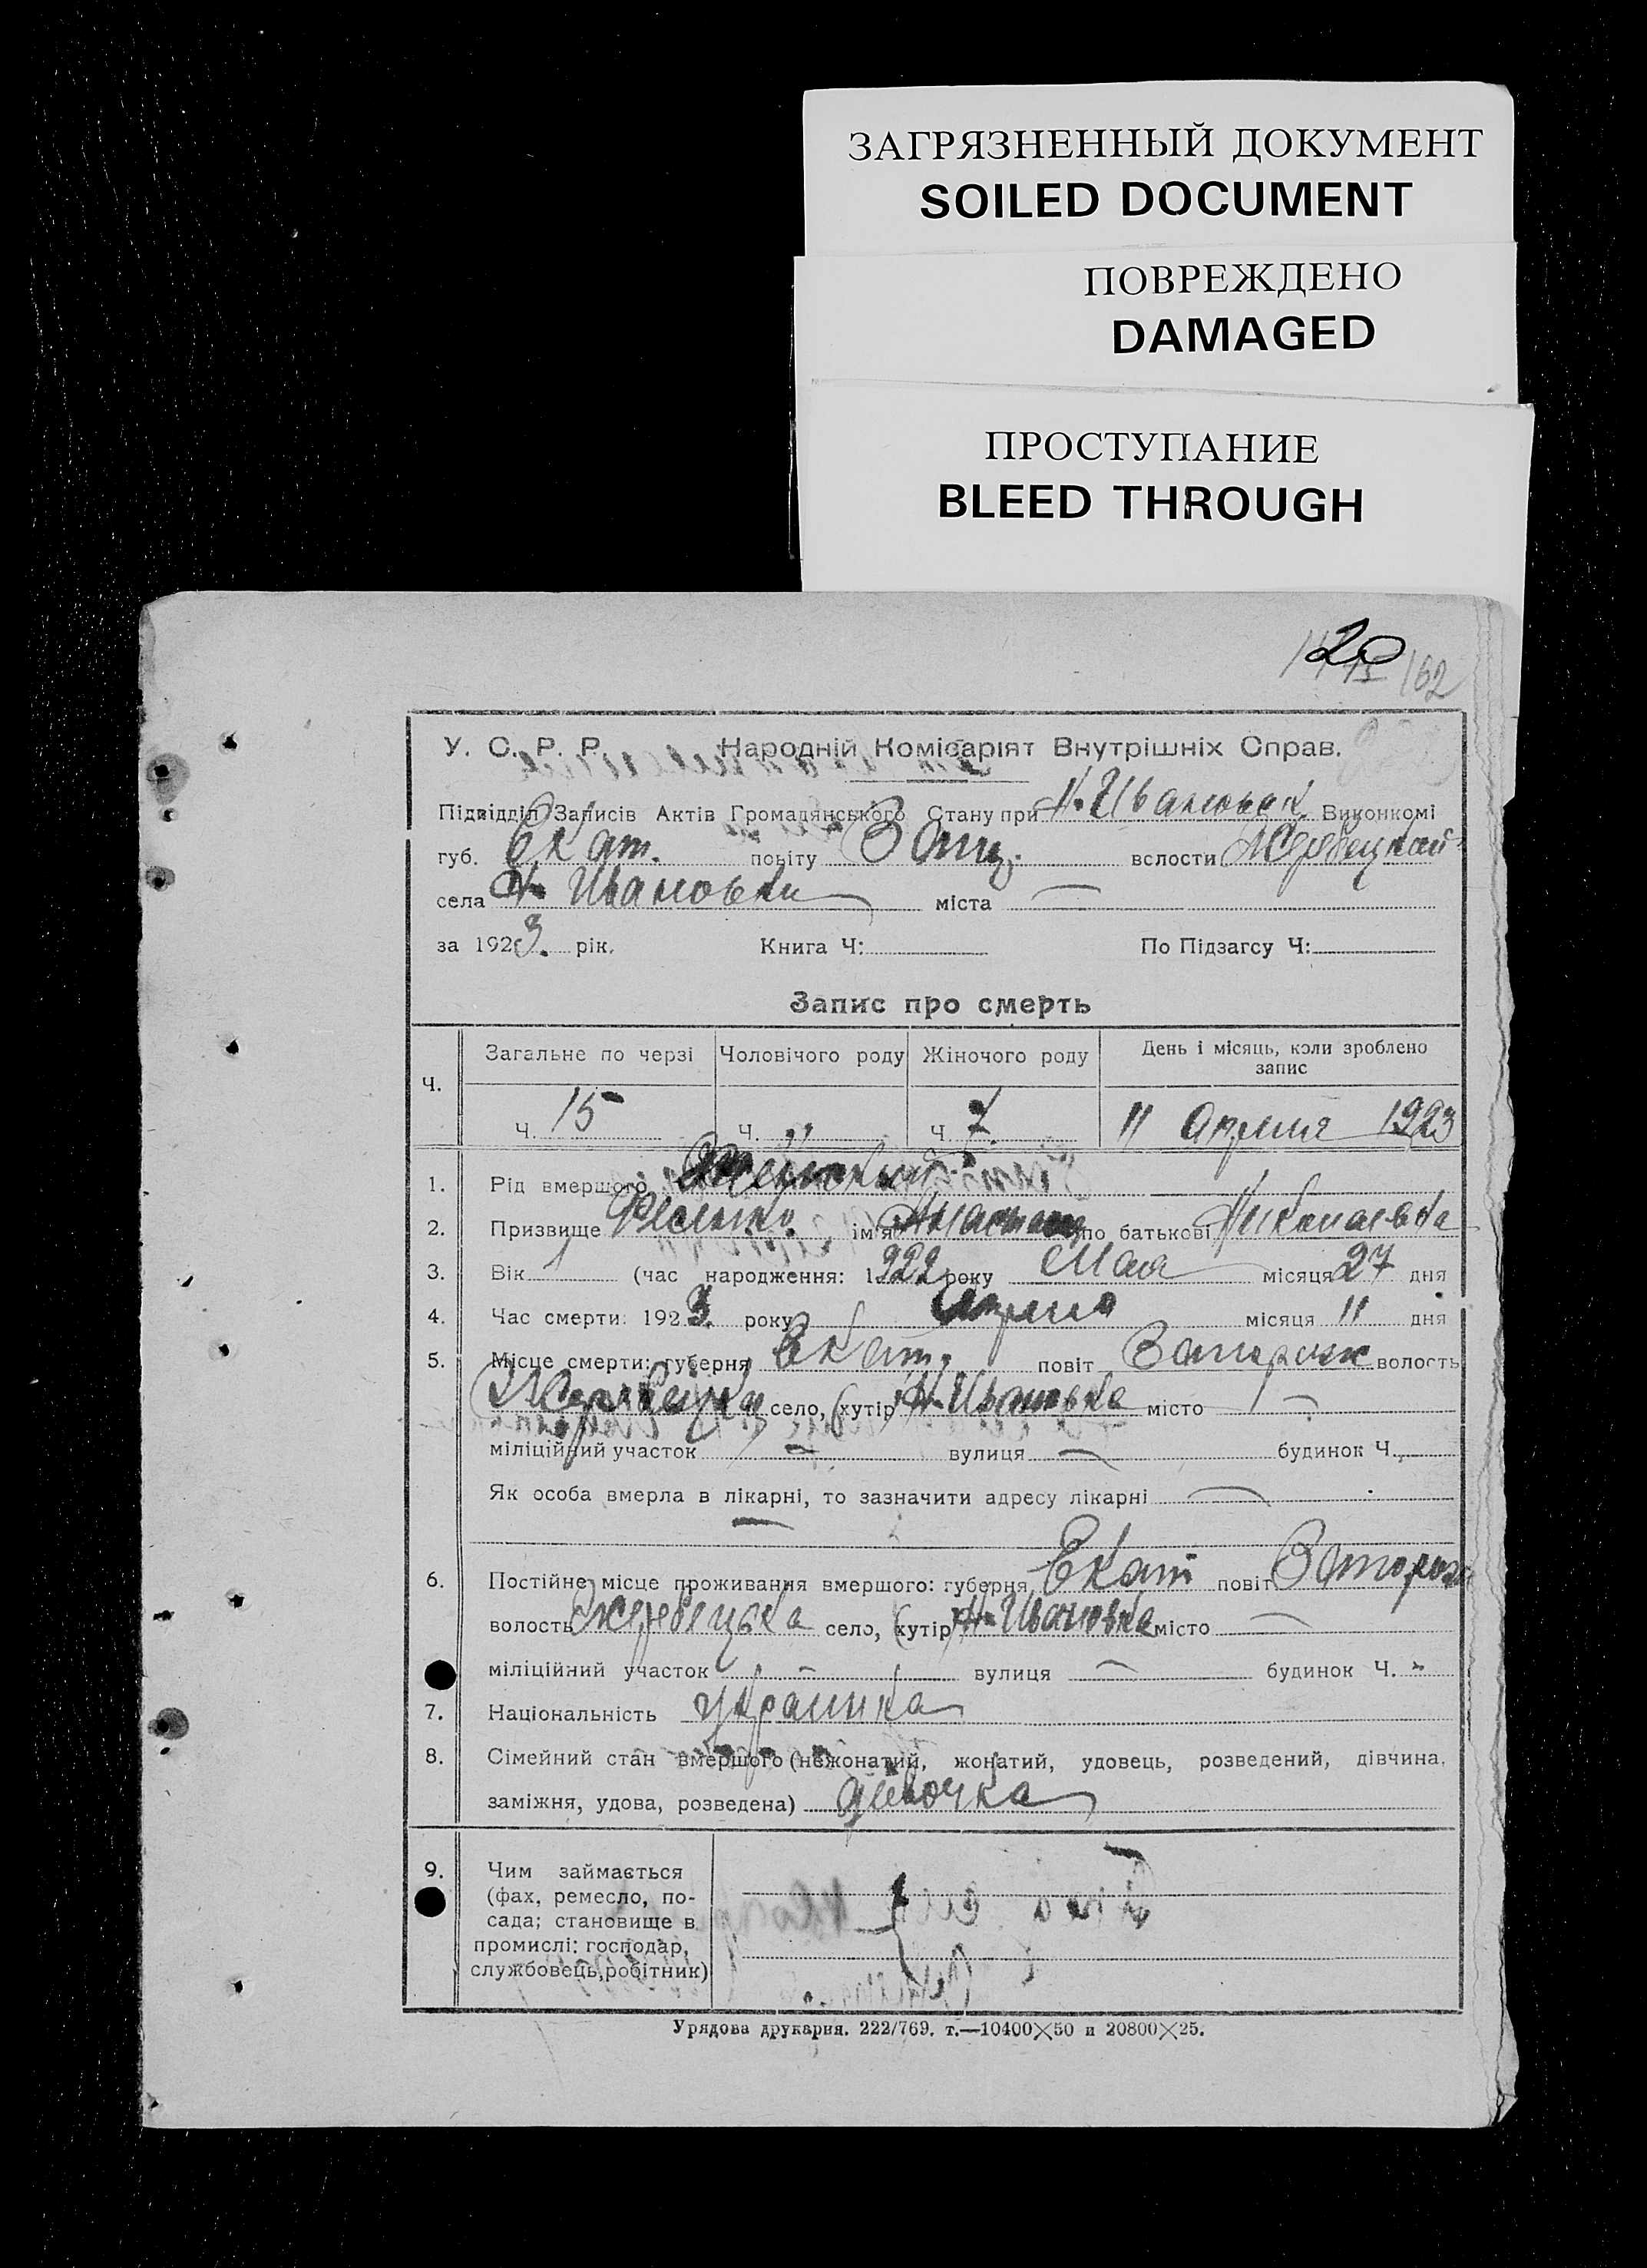 ЗАГРЯЗНЕННЫЙ ДОКУМЕНТ
SOILED DOCUMENT
ПОВРЕЖДЕНО
DAMAGED
ПРОСТУПАНИЕ
BLEED THROUGH
20
162
У. С. Р. Р. Народній Комісаріят Внутрішніх Справ.
Підвідділ Записів Актів Громадянського Стану при Н-Ивановск Виконкомі
губ. Екат. повіту Зап. волости Жеребецкой
села Н-Ивановки міста —
за 1923. рік. Книга Ч: По Підзагсу Ч:
Запис про смерть
Ч. Загальне по черзі Чоловічого роду Жіночого роду День і місяць, коли зроблено запис
Ч. 15 Ч. „ Ч. 7. 11 Апреля 1923
1. Рід вмершого Женский
2. Призвище ім'я Анастасия по батькові Николаевна
3. Вік 1 (час народження: 1922 року Мая місяця 27 дня
4. Час смерти: 1923. року Апреля місяця 11 дня
5. Місце смерти: губерня Екат. повіт Запорож волость
Жеребецка село, (хутір) Н-Ивановка місто —
міліційний участок — вулиця — будинок Ч.
Як особа вмерла в лікарні, то зазначити адресу лікарні —
—
6. Постійне місце проживання вмершого: губерня Екат повіт Запорож
волость Жеребецька село, (хутір) Н-Ивановка місто —
міліційний участок — вулиця — будинок Ч. -
7. Національність украинка
8. Сімейний стан вмершого (нежонатий, жонатий, удовець, розведений, дівчина,
заміжня, удова, розведена) девочка
9. Чим займається
(фах, ремесло, по-
сада; становище в
промислі: господар,
службовець, робітник)
Урядова друкарня. 222/769. т.—10400×50 и 20800×25.